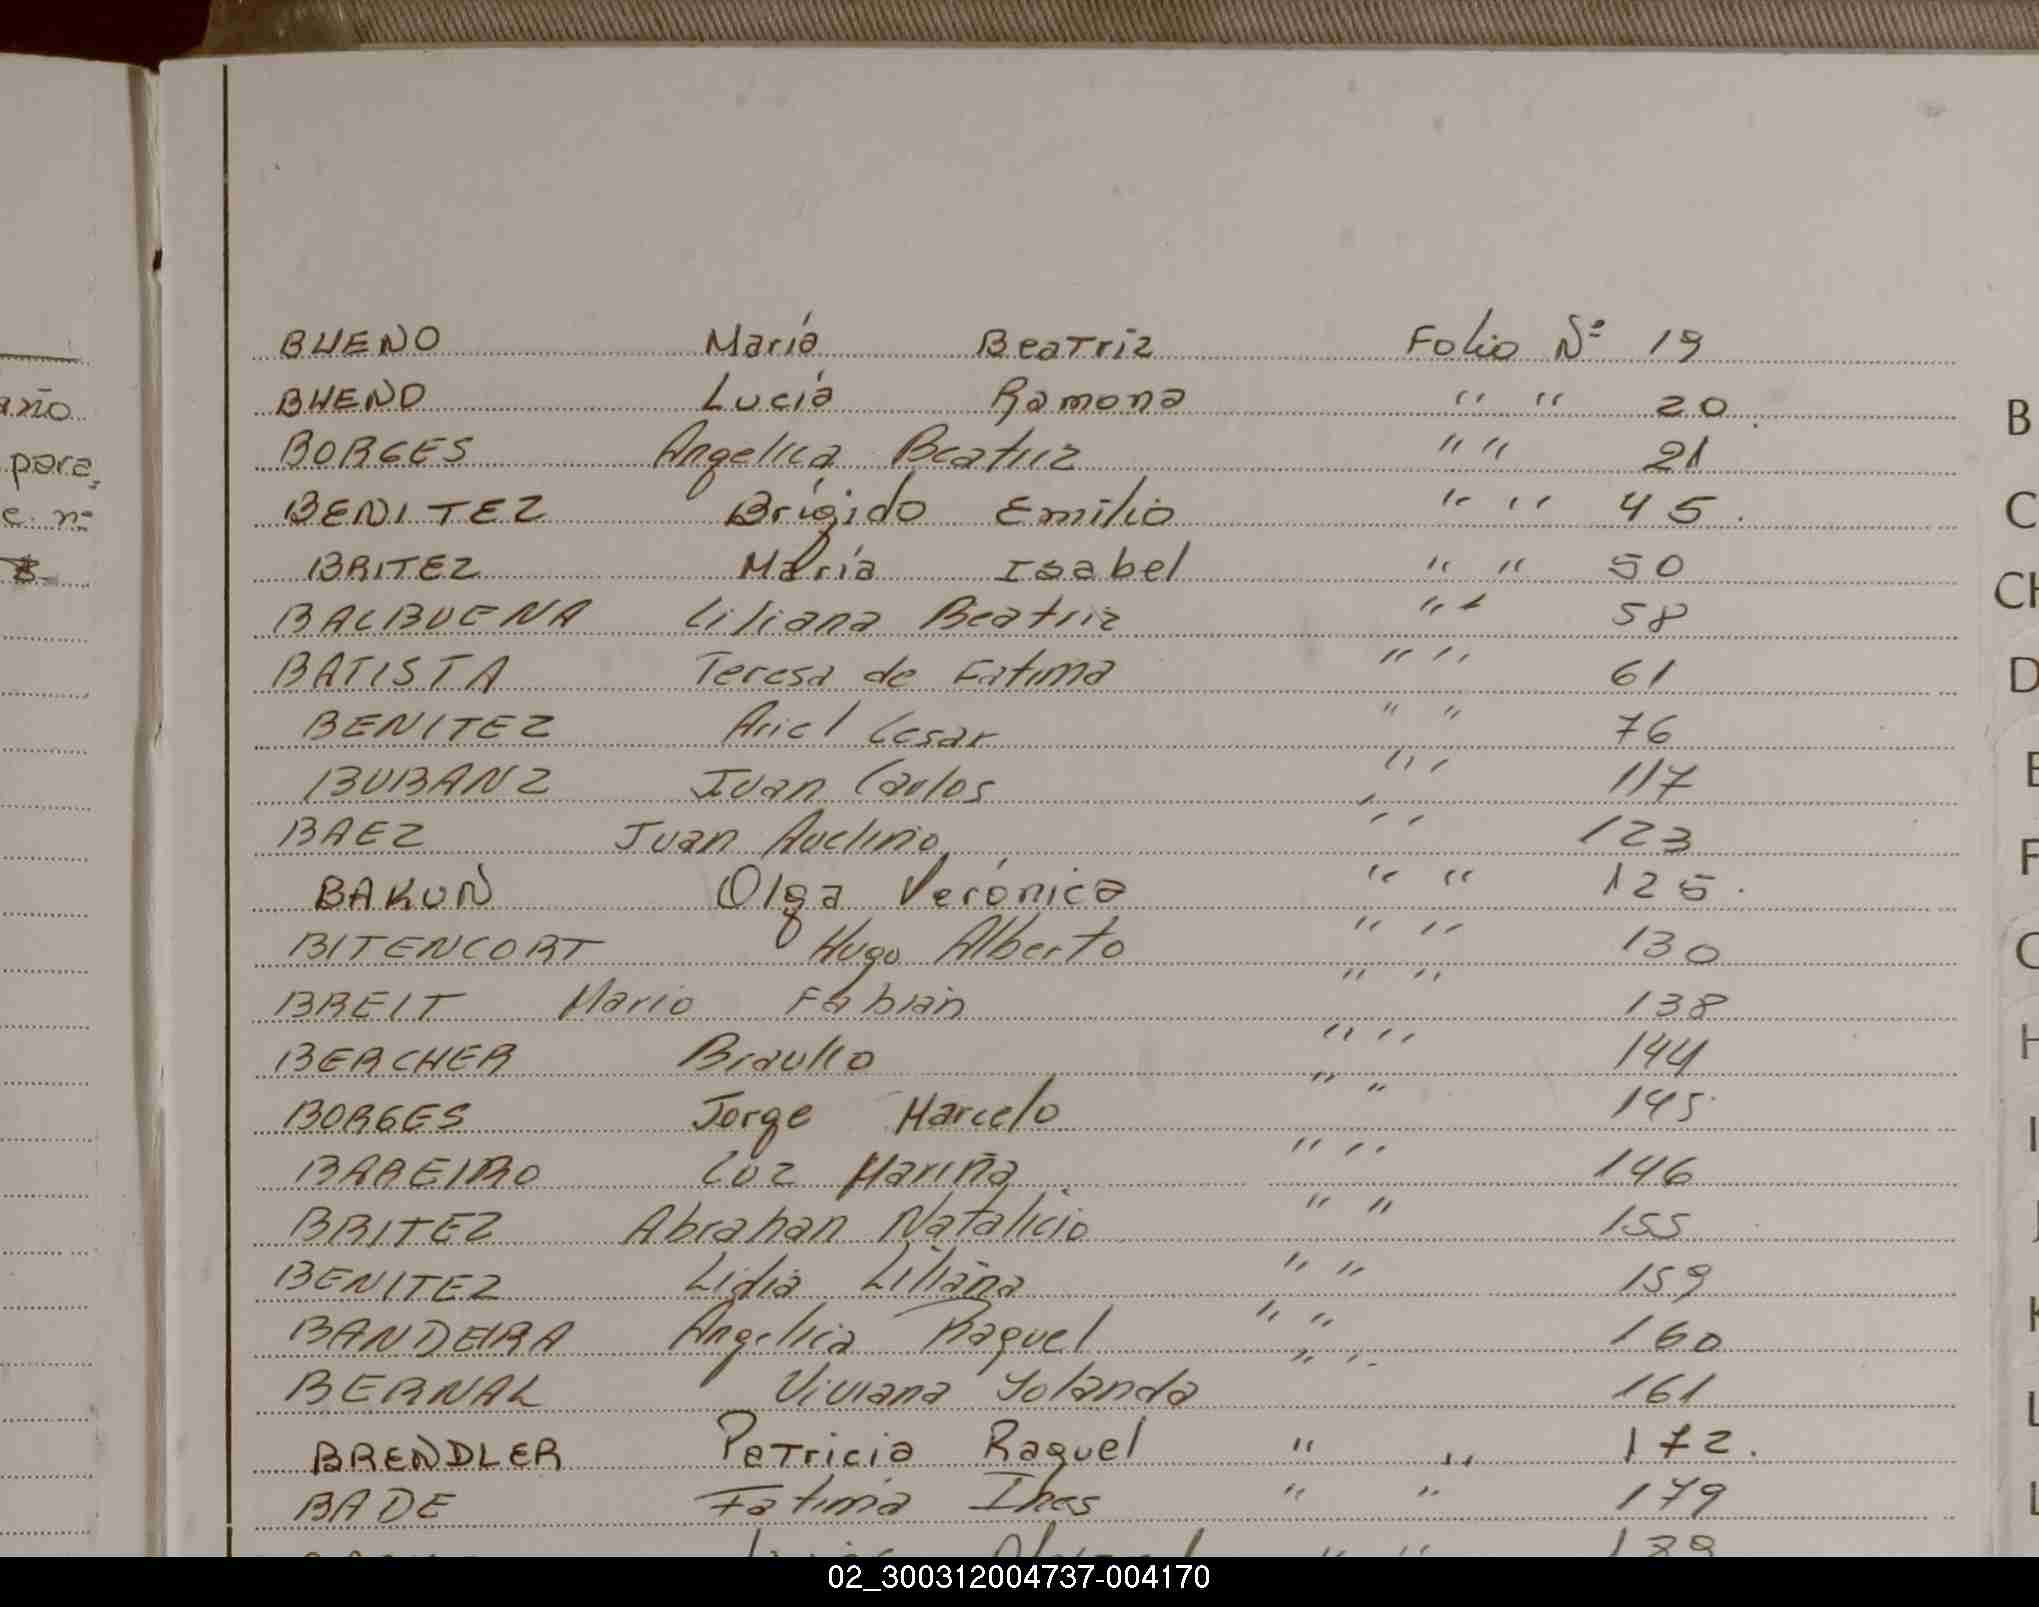 BUENO María Beatriz Folio Nº 19
BUENO Lucía Ramona " " 20
BORGES Angelica Beatriz " " 21
BENITEZ Brígido Emilio " " 45.
BRITEZ María Isabel " " 50
BALBUENA Liliana Beatriz " " 58
BATISTA Teresa de Fatima " " 61
BENITEZ Ariel Cesar " " 76
BUBANZ Juan Carlos " " 117
BAEZ Juan Avelino " " 123
BAKUN Olga Verónica " " 125.
BITENCORT Hugo Alberto " " 130
BREIT Mario Fabian " " 138
BERCHER Braulio " " 144
BORGES Jorge Marcelo " " 145
BAREIRO Luz Marina " " 146
BRITEZ Abrahan Natalicio " " 155
BENITEZ Lidia Liliana " " 159
BANDEIRA Angelica Raquel " " 160
BERNAL Viviana Yolanda " " 161
BRENDLER Patricia Raquel " " 172.
BADE Fatima Ines " " 179
para
B
C
CH
D
E
F
H
I
J
K
L
L
02_300312004737-004170